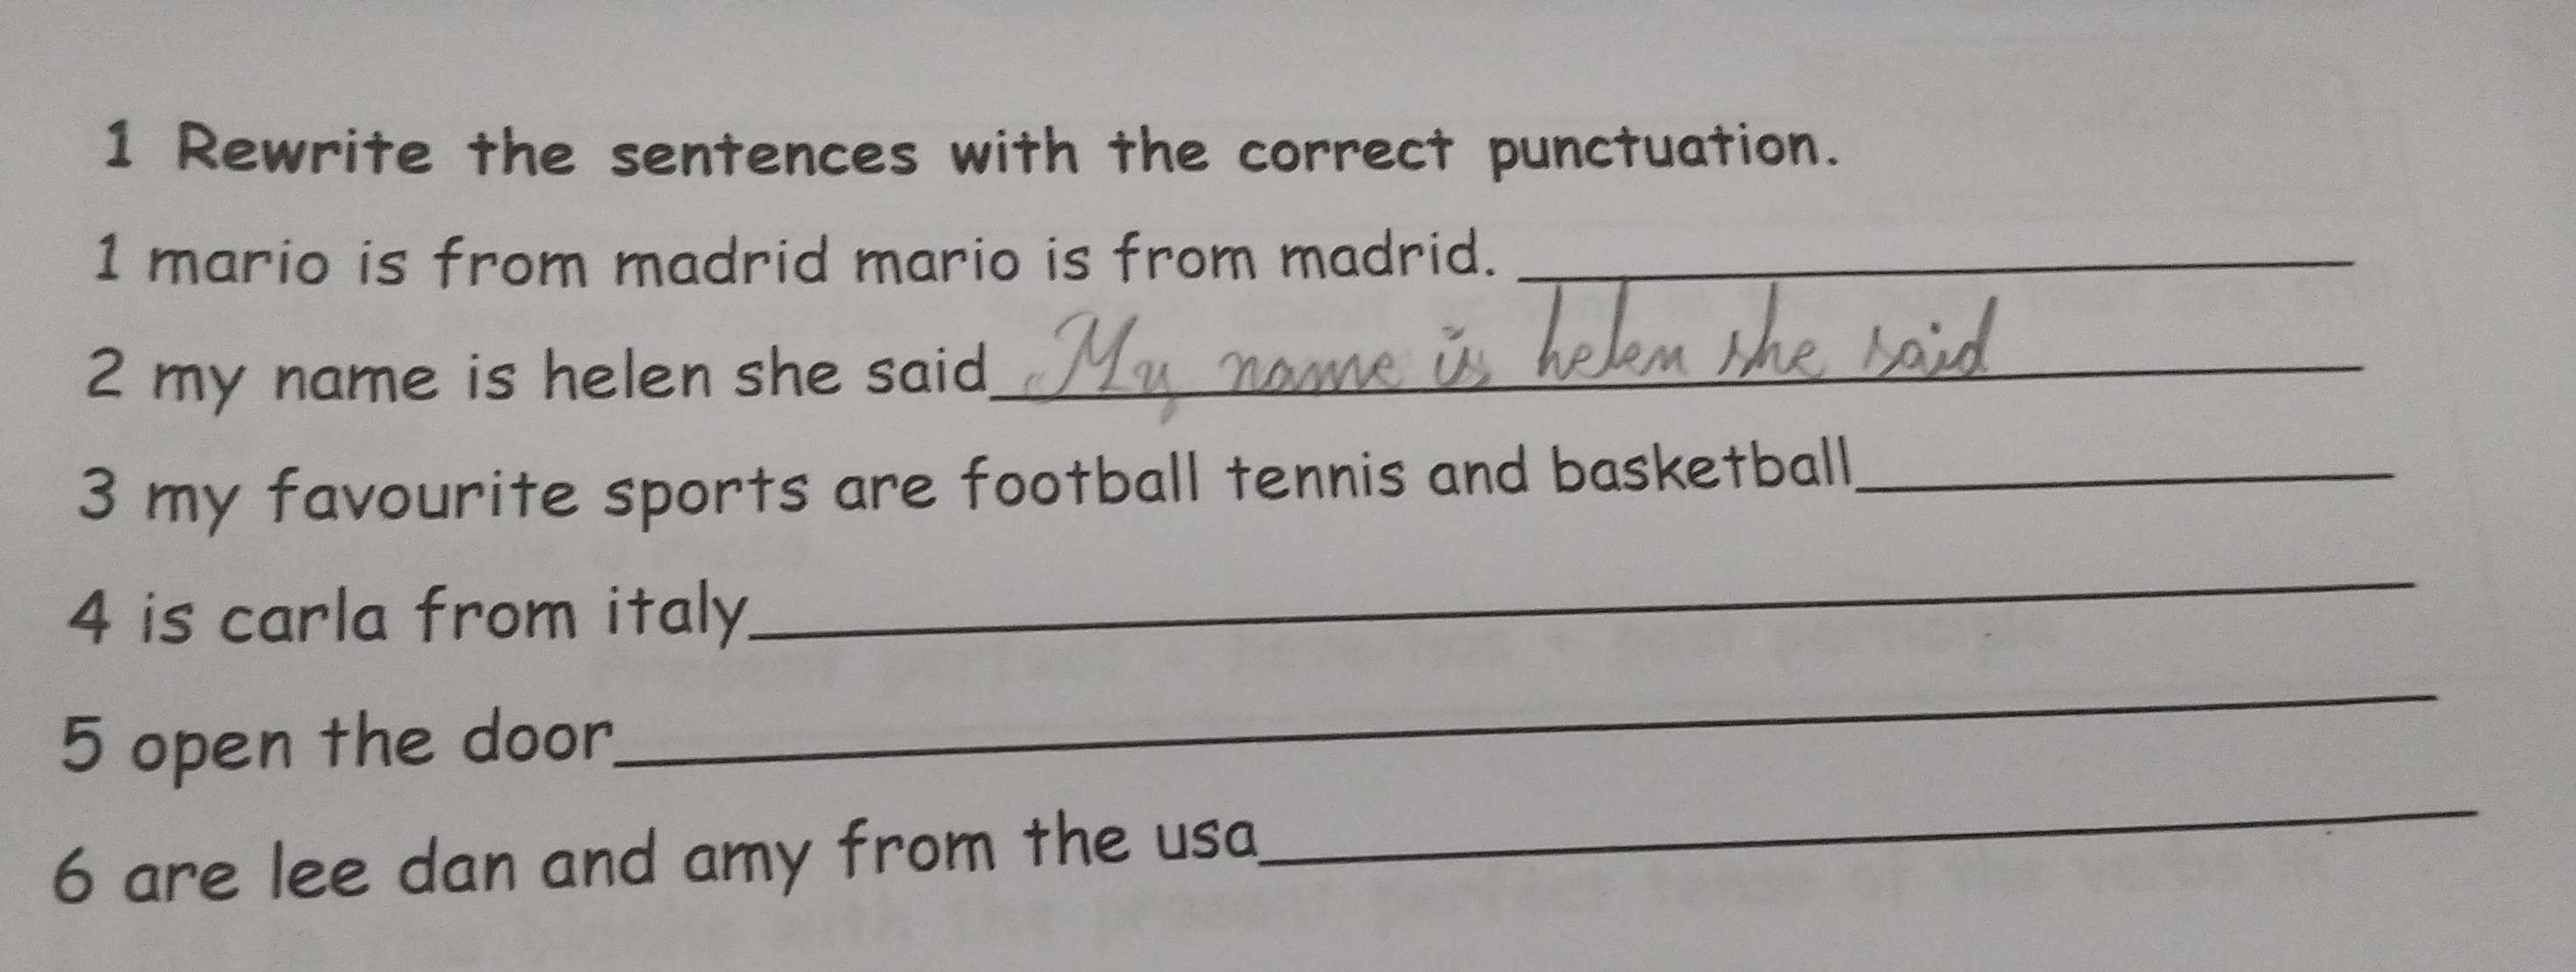 1 Rewrite the sentences with the correct punctuation.
1 mario is from madrid mario is from madrid. ____________
2 my name is helen she said My name is helen she said
3 my favourite sports are football tennis and basketball____________
4 is carla from italy____________
5 open the door____________
6 are lee dan and amy from the usa____________